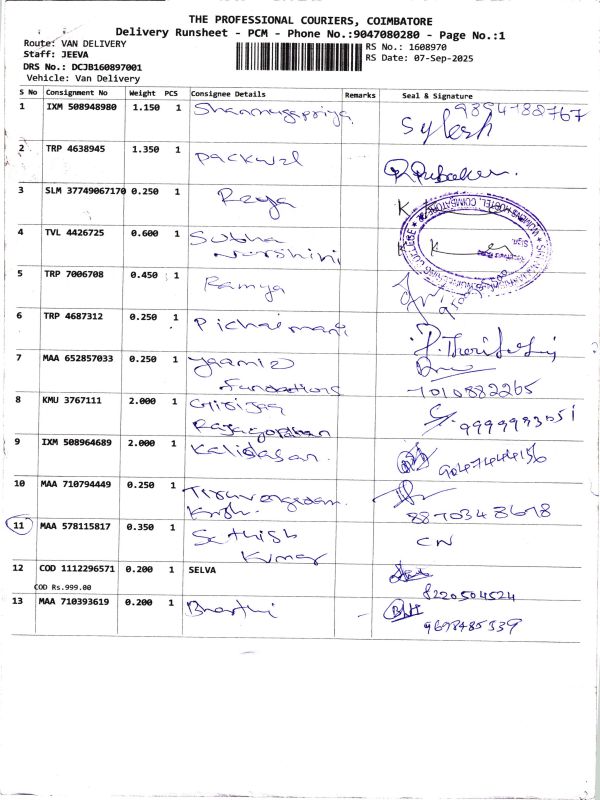 THE PROFESSIONAL COURIERS, COIMBATORE
Delivery Runsheet - PCM - Phone No.:9047080280 - Page No.:1
Route: VAN DELIVERY
RS No.: 1608970
Staff: JEEVA
RS Date: 07-Sep-2025
DRS No.: DCJB160897001
Vehicle: Van Delivery
S No Consignment No Weight PCS Consignee Details Remarks Seal & Signature
1 IXM 508948980 1.150 1 Shanmugapriya
2 TRP 4638945 1.350 1 Packwel
3 SLM 37749067170 0.250 1
4 TVL 4426725 0.600 1 Subha
5 TRP 7006708 0.450 1 Ramya
6 TRP 4687312 0.250 1 Pichaimani
7 MAA 652857033 0.250 1
7010882265
8 KMU 3767111 2.000 1
9999993051
9 IXM 508964689 2.000 1 Kalidasan.
10 MAA 710794449 0.250 1
8870348678
11 MAA 578115817 0.350 1 Sathish CN
Kumar
12 COD 1112296571 0.200 1 SELVA
COD Rs.999.00
8220504524
13 MAA 710393619 0.200 1 Bharthi
9698485339